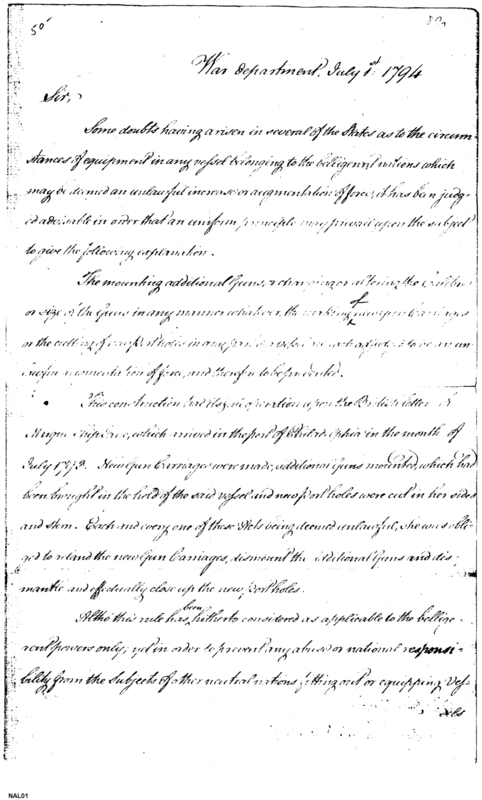 50
War department, July 1st 1794
Sir,
Some doubts having arisen in several of the States as to the circum-
stances of equipment in any vessel belonging to the belligerent nations which
may be deemed an unlawful increase or augmentation of force, it has been judg-
ed adviseable in order that an uniform principle may prevail upon the subject
to give the following explanation.
The mounting additional Guns, or changing or altering the Calibre
or size of the Guns in any manner whatever, the making of new Gun Carriages
or the cutting of new port holes in any
augmentation of force, and therefore to be prevented.
This construction had its operation upon the British letter of
Marque Ship Jane, which arrived in the port of Philadelphia in the month of
July 1793. New Gun Carriages were made, additional Guns mounted, which had
been brought in the hold of the said vessel and new port holes were cut in her sides
and stern. Each and every one of these Acts being deemed unlawful, she was obli-
ged to reland the new Gun Carriages, dismount the additional Guns and dis-
mantle and effectually close up the new port holes.
Altho this rule has been hitherto considered as applicable to the bellige-
rent powers only; yet in order to prevent any abuse or national responsi-
bility from the Subjects of other neutral nations fitting out or equipping Ves-
sels
NAL01